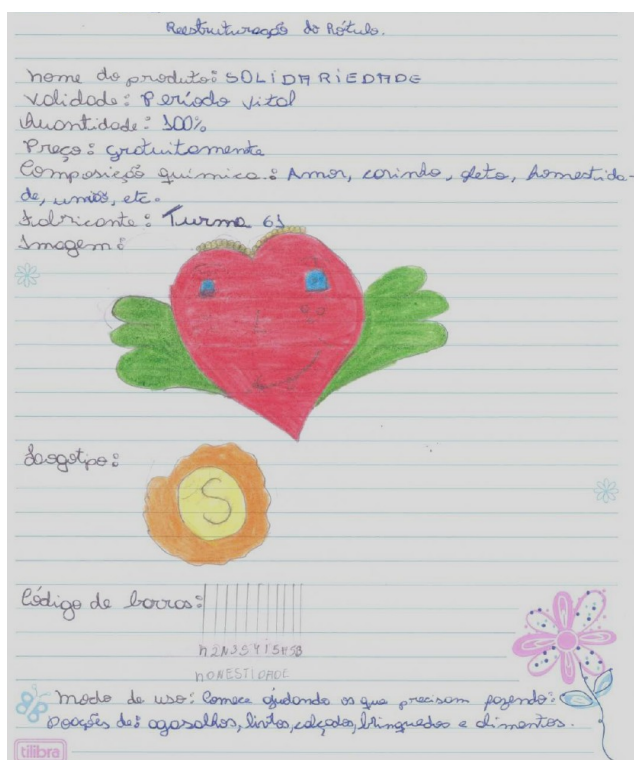 Reestruturação do Rótulo.
Nome do produto: SOLIDARIEDADE
Validade: Período vital
Quantidade: 100%
Preço: gratuitamente
Composição química: Amor, carinho, afeto, homestida-
de, união, etc.
Fabricante: Turma 61
Imagem:
Logotipo:
S
Código de barras:
HONESTIDADE
Modo de uso: Comece ajudando os que precisam fazendo:
Doações de: agasalhos, livros, calçados, brinquedos e alimentos.
tilibra